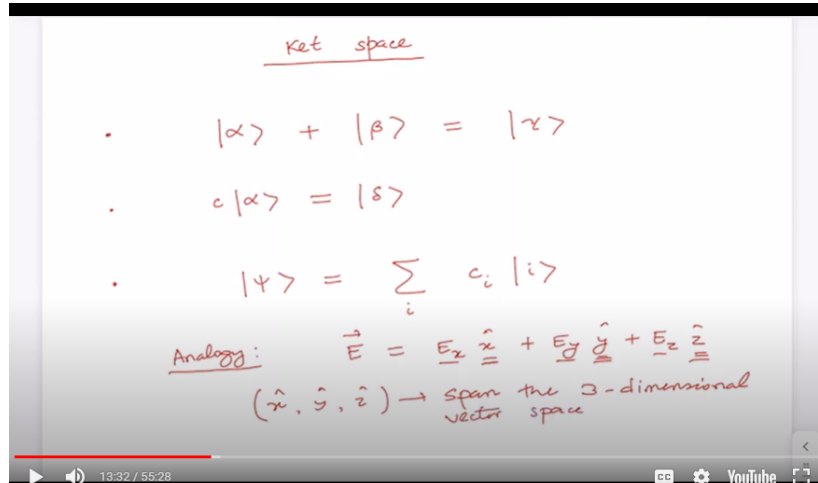 Ket space
. |α> + |β> = |γ>
. c|α> = |δ>
. |ψ> = ∑ c_i |i>
i
Analogy : E⃗ = E_x x̂ + E_y ŷ + E_z ẑ
(x̂, ŷ, ẑ) → span the 3-dimensional
vector space
13:32 / 55:28
CC
YouTube